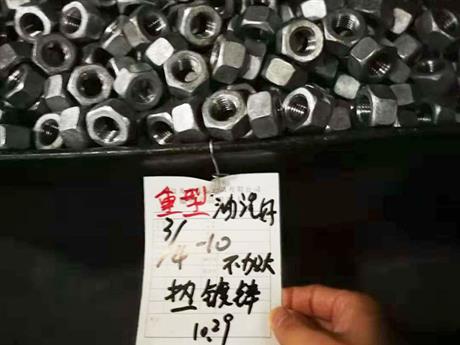 重型 油淬好
3/4-10
不加大
热镀锌
10.29